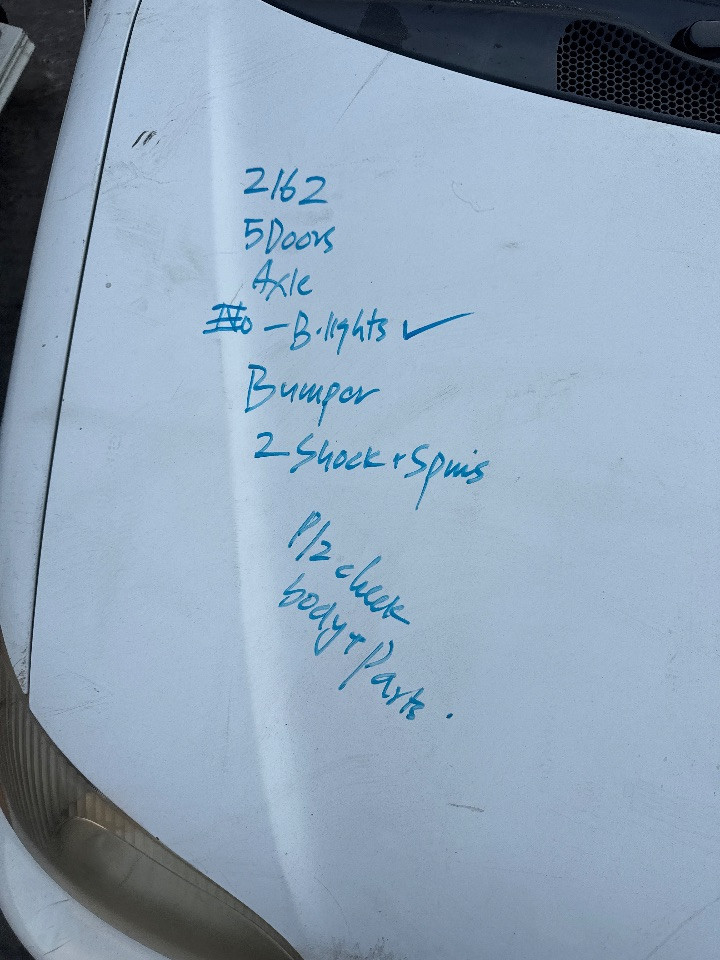 2162
5 Doors
Axle
No - B.lights ✓
Bumper
2 Shock + Spris
P/2 check
body + Parts.